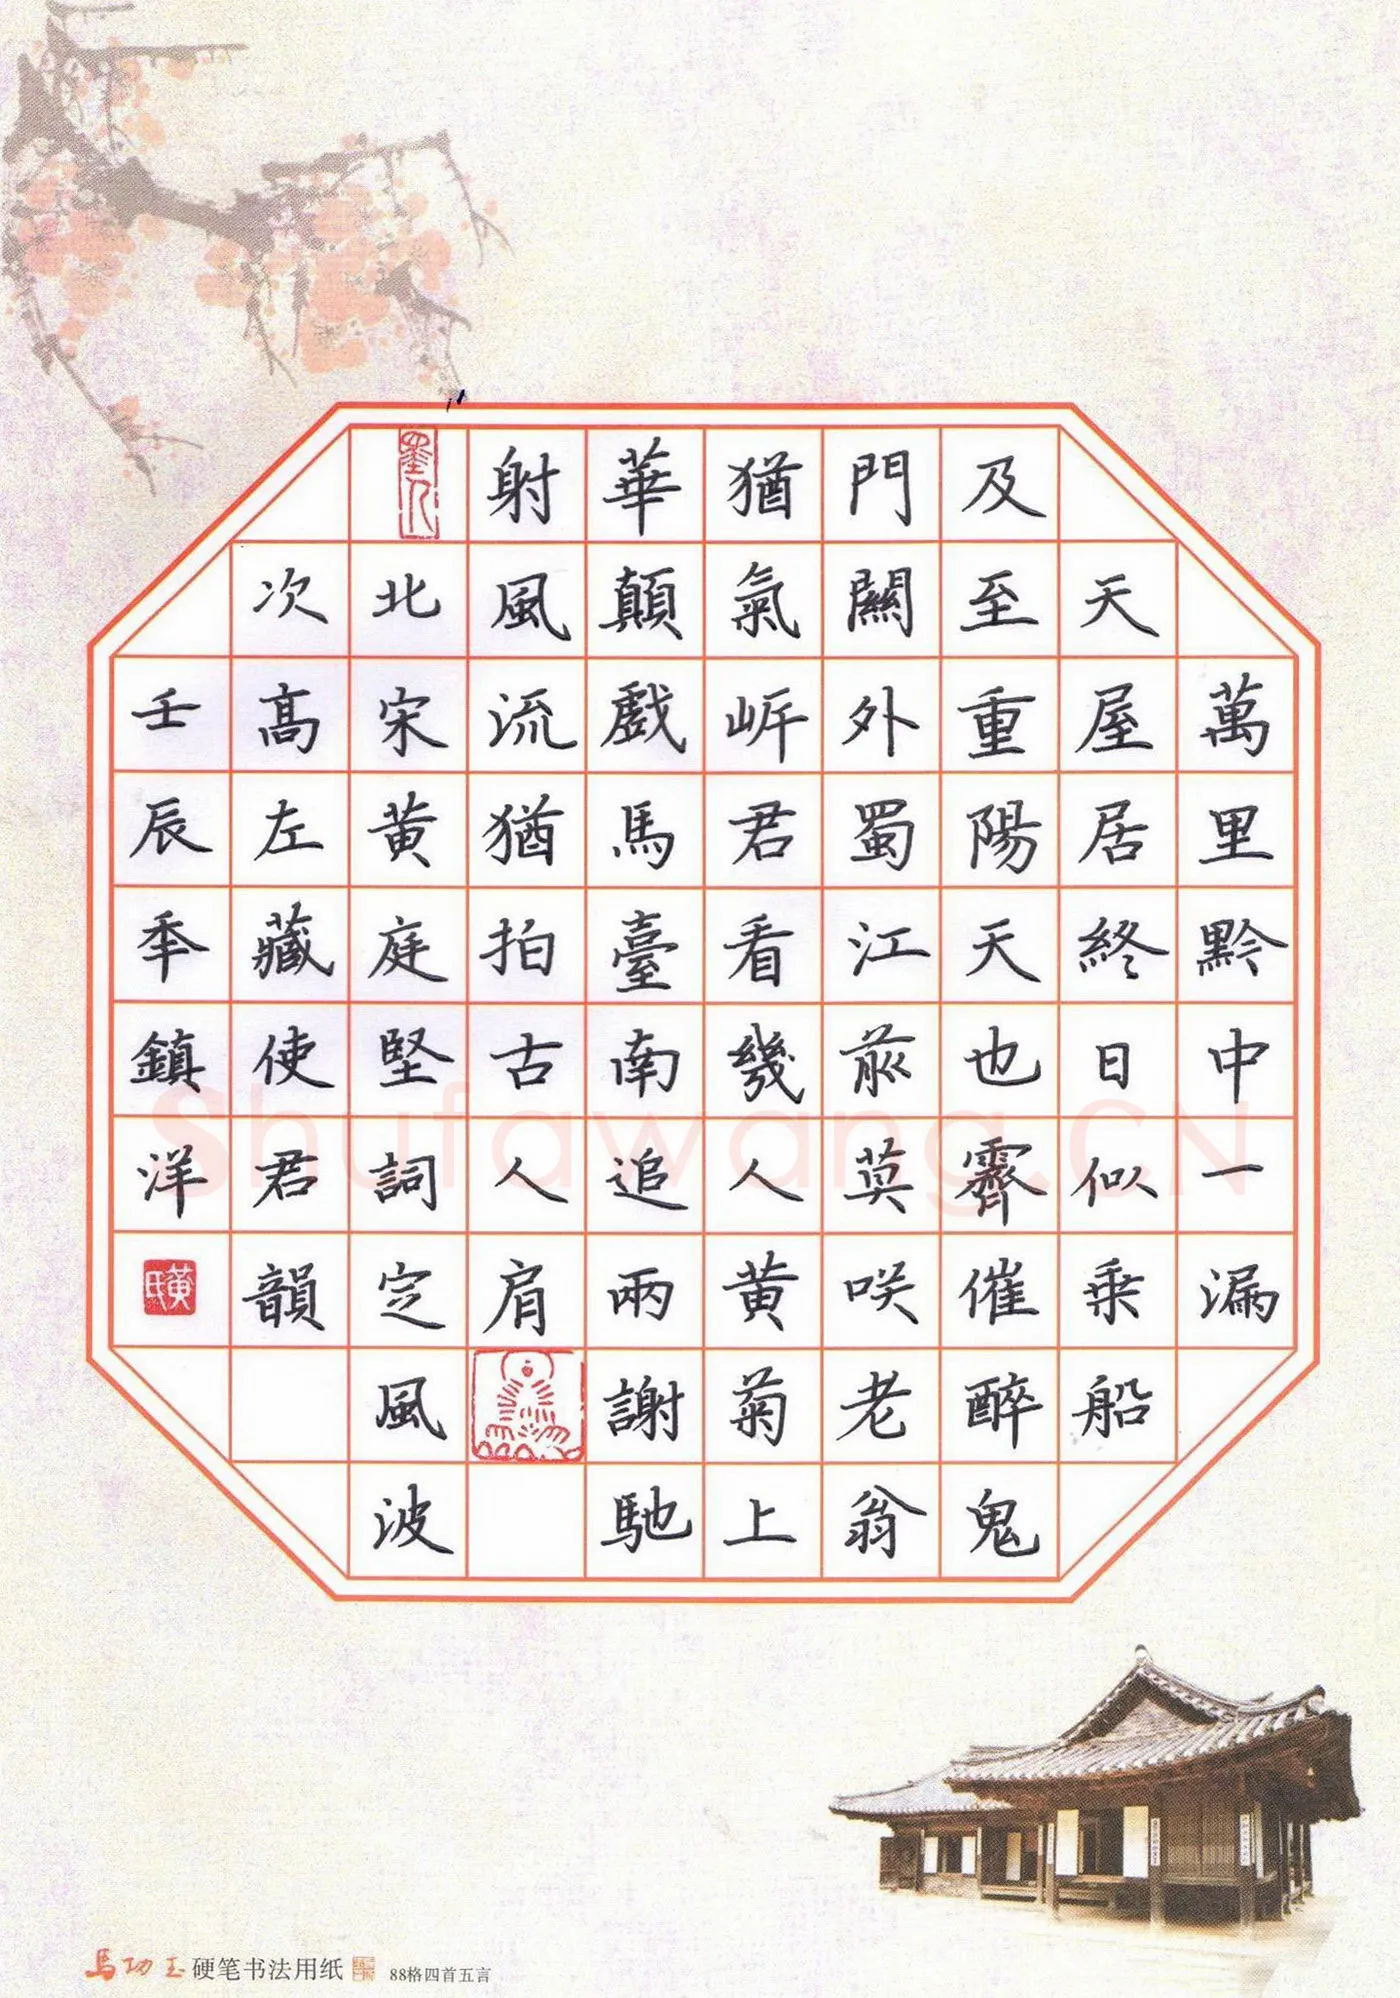 萬里黔中一漏
天屋居終日似乗船
及至重陽天也霽催醉鬼
門關外蜀江前莫咲老翁
猶氣岓君看幾人黄菊上
華顛戲馬臺南追兩謝馳
射風流猶拍古人肩
北宋黄庭堅詞定風波
次高左藏使君韻
壬辰秊鎮洋
黄氏
墨人
Shufawang.CN
馬功玉硬笔书法用纸 88格四首五言